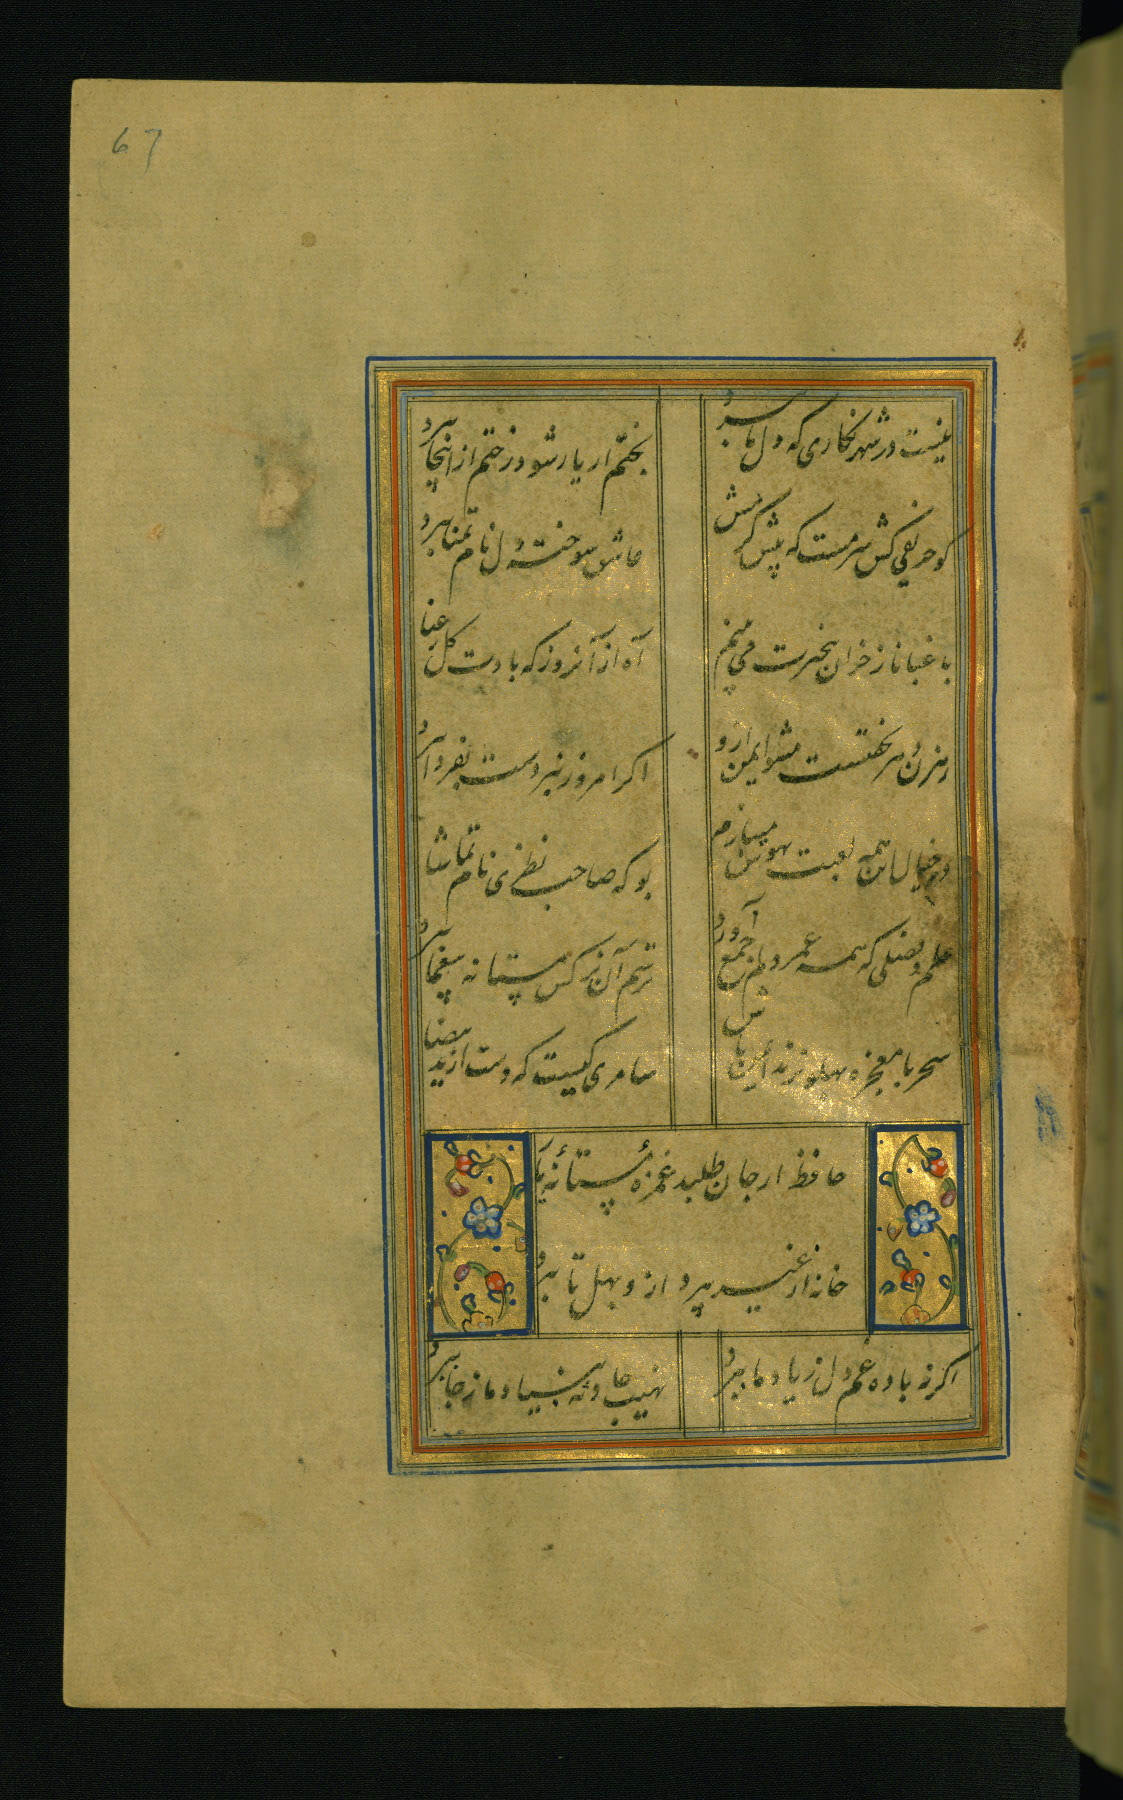 67
نیست در شهر نکاری که دل ما ببرد
بختم ار یار شود رختم از اینجا ببرد
کو حریفی کش سرمست که پیش کرمش
عاشق سوخته دل نام تمنا ببرد
باغبانا ز خزان بیخبرت می بینم
آه از آنروز که بادت کل رعنا ببرد
رهزن دهر نخفتست مشو ایمن ازو
اکر امروز نبردست بفردا ببرد
در خیال این همه لعبت بهوس میبازم
بو که صاحب نظری نام تماشا ببرد
علم و فضلی که بچل سال دلم جمع آورد
ترسم آن نرکس مستانه بیغما ببرد
سحر با معجزه پهلو نزند ایمن باش
سامری کیست که دست از ید بیضا ببرد
حافظ ار جان طلبد غمزه مستانه یار
خانه از غیر بپرداز و بهل تا ببرد
اکر نه باده غم دل ز یاد ما ببرد
نهیب حادثه بنیاد ما ز جا ببرد